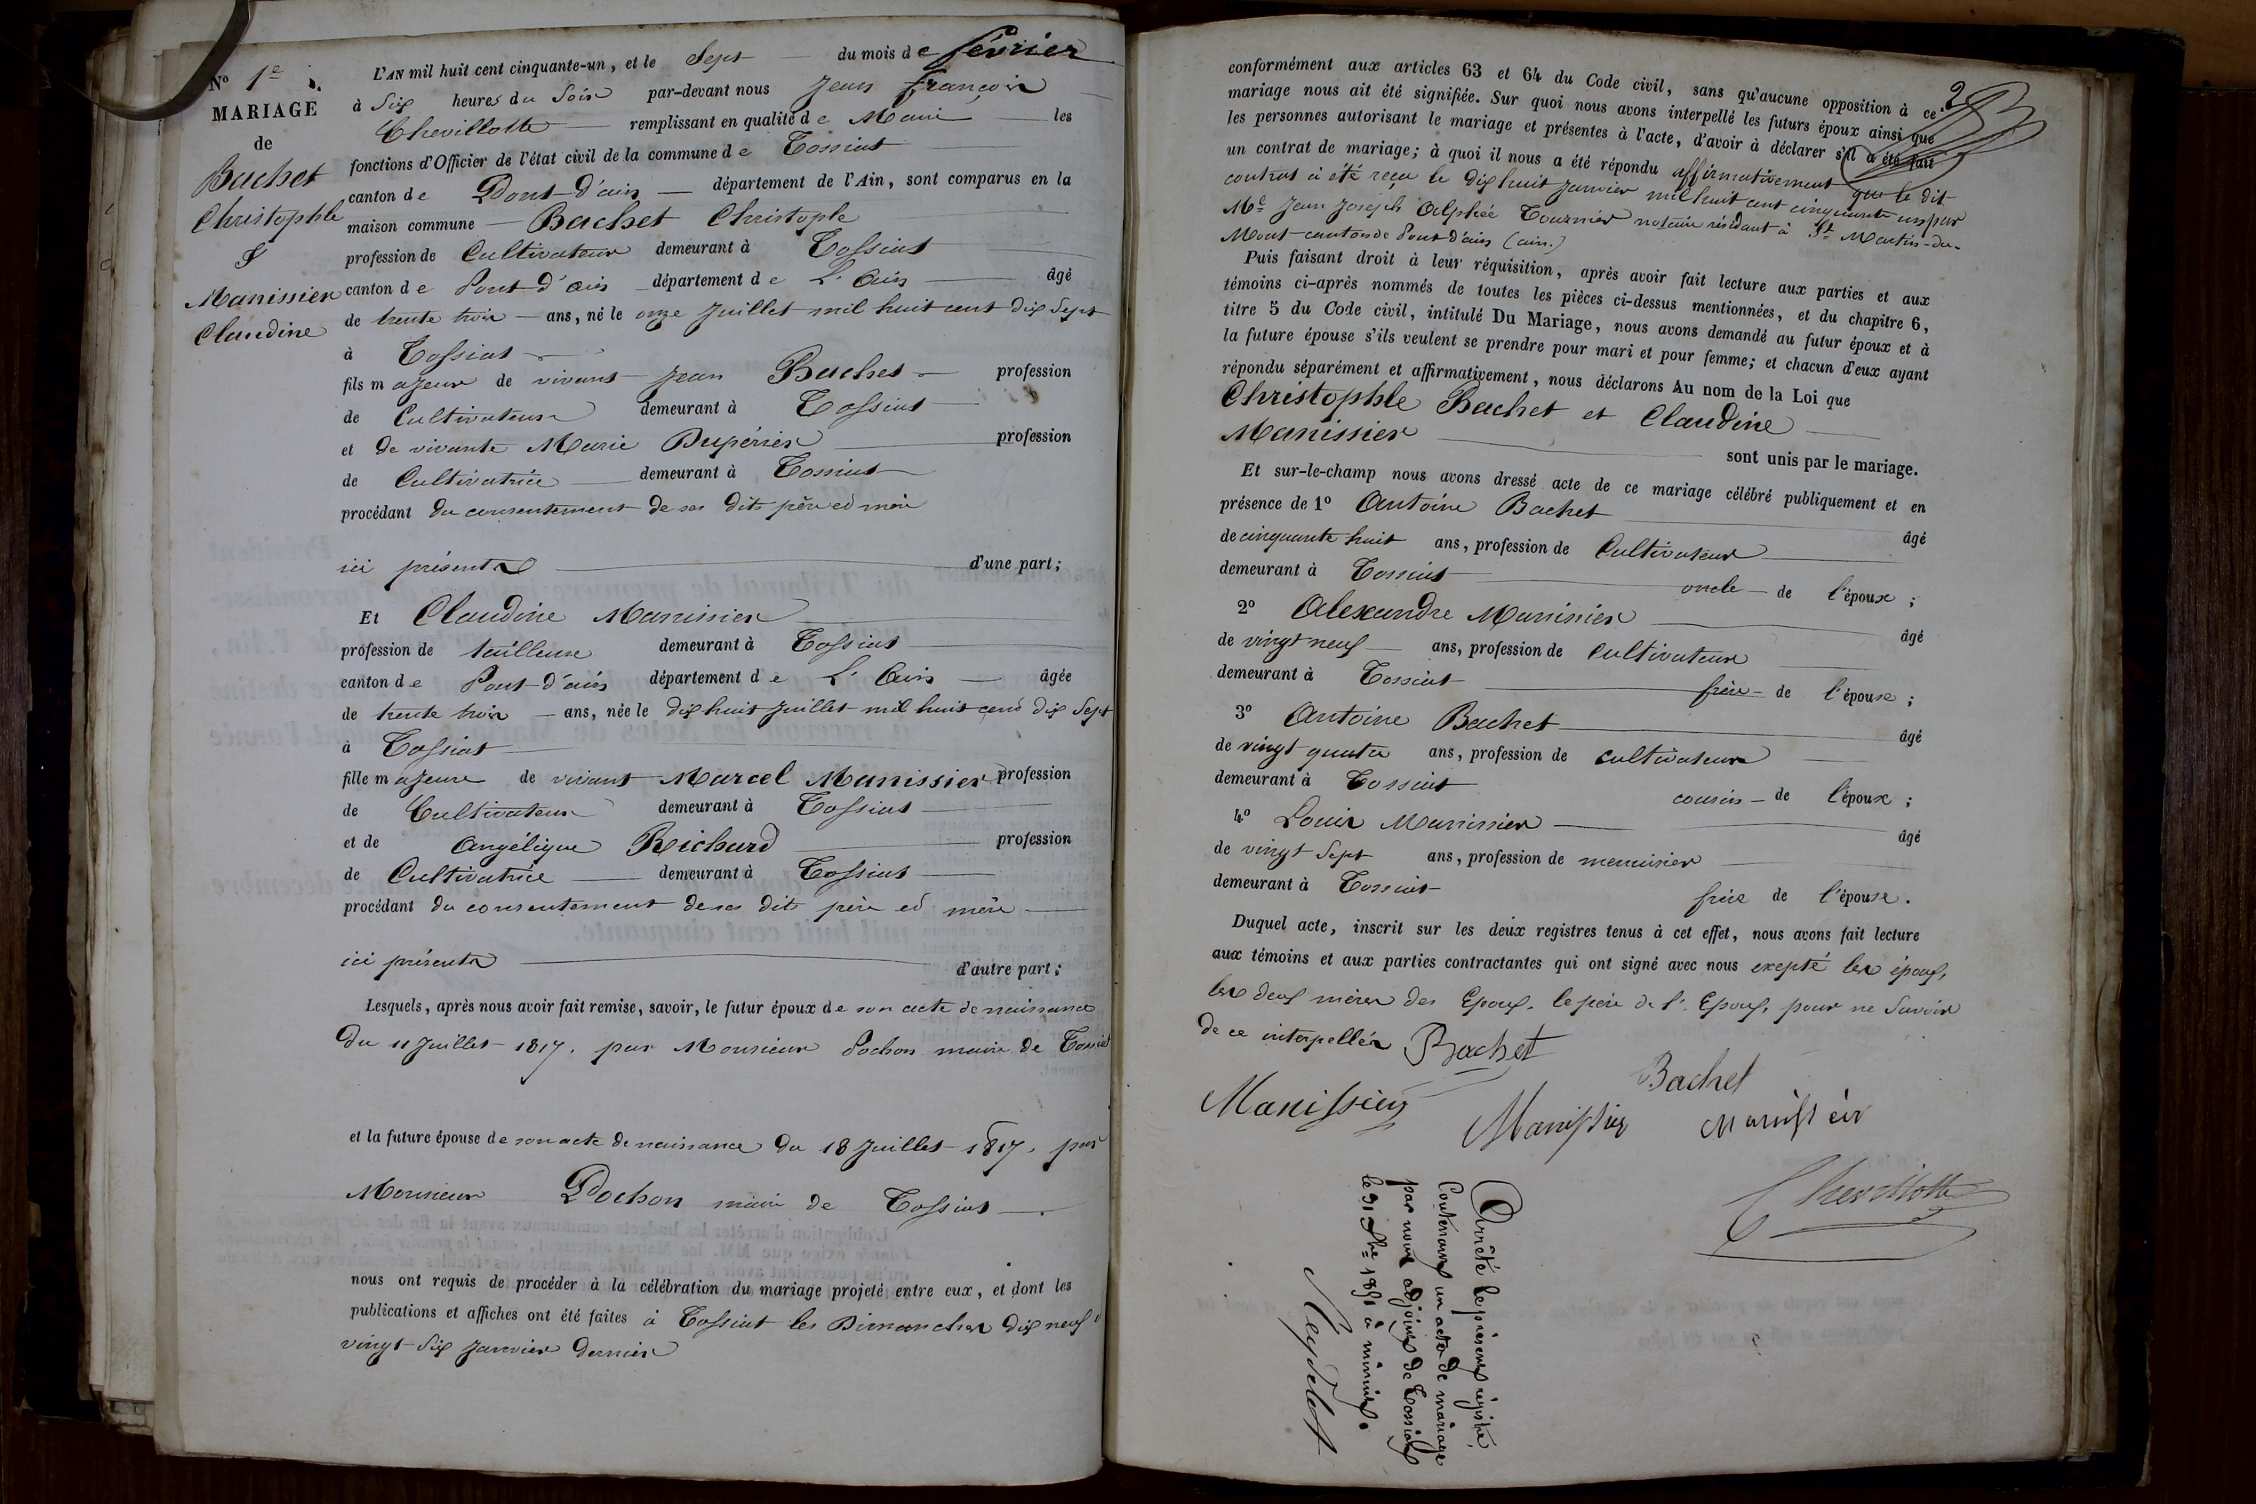 N° 1er
MARIAGE
de
Bachet
Christophle
&
Manissier
Claudine
L'AN mil huit cent cinquante-un, et le Sept du mois de février
à Six heures du Soir par-devant nous Jean François
Chevillotte remplissant en qualité de Maire les
fonctions d'Officier de l'état civil de la commune de Tossiat
canton de Pont d'ain département de l'Ain, sont comparus en la
maison commune Bachet Christople
profession de Cultivateur demeurant à Tossiat
canton de Pont d'ain département de L'Ain âgé
de trente trois ans, né le onze Juillet mil huit cent dix Sept
à Tossiat
fils majeur de vivant Jean Bachet profession
de Cultivateur demeurant à Tossiat
et de vivante Marie Dupérier profession
de Cultivatrice demeurant à Tossiat
procédant du consentement de ses dits père et mère
ici présents d'une part;
Et Claudine Manissier
profession de tailleuse demeurant à Tossiat
canton de Pont-d'ain département de L'Ain âgée
de trente trois ans, née le dix huit Juillet mil huit cent dix Sept
à Tossiat
fille majeure de vivant Marcel Manissier profession
de Cultivateur demeurant à Tossiat
et de Angélique Richard profession
de Cultivatrice demeurant à Tossiat
procédant du consentement de ses dits père et mère
ici présents d'autre part;
Lesquels, après nous avoir fait remise, savoir, le futur époux de son acte de naissance
du 11 Juillet 1817, par Monsieur Pochon maire de Tossiat
et la future épouse de son acte de naissance du 18 Juillet 1817, par
Monsieur Pochon maire de Tossiat
nous ont requis de procéder à la célébration du mariage projeté entre eux, et dont les
publications et affiches ont été faites à Tossiat les Dimanches dix neuf &
vingt-Six Janvier dernier
2
conformément aux articles 63 et 64 du Code civil, sans qu'aucune opposition à ce
mariage nous ait été signifiée. Sur quoi nous avons interpellé les futurs époux ainsi que
les personnes autorisant le mariage et présentes à l'acte, d'avoir à déclarer s'il a été fait
un contrat de mariage; à quoi il nous a été répondu affirmativement que le dit
contrat à été reçu le dix huit Janvier mil huit cent cinquante un par
Me Jean Joseph Alphée Tournier notaire résidant à St Martin-du-
Mont canton de Pont d'ain (ain.)
Puis faisant droit à leur réquisition, après avoir fait lecture aux parties et aux
témoins ci-après nommés de toutes les pièces ci-dessus mentionnées, et du chapitre 6,
titre 5 du Code civil, intitulé Du Mariage, nous avons demandé au futur époux et à
la future épouse s'ils veulent se prendre pour mari et pour femme; et chacun d'eux ayant
répondu séparément et affirmativement, nous déclarons Au nom de la Loi que
Christophle Bachet et Claudine
Manissier
sont unis par le mariage.
Et sur-le-champ nous avons dressé acte de ce mariage célébré publiquement et en
présence de 1° Antoine Bachet
âgé
de cinquante huit ans, profession de Cultivateur
demeurant à Tossiat oncle de l'époux;
2° Alexandre Manissier
âgé
de vingt neuf ans, profession de Cultivateur
demeurant à Tossiat frère de l'épouse;
3° Antoine Bachet
âgé
de vingt quatre ans, profession de cultivateur
demeurant à Tossiat cousin de l'époux;
4° Louis Manissier
âgé
de vingt Sept ans, profession de menuisier
demeurant à Tossiat frère de l'épouse.
Duquel acte, inscrit sur les deux registres tenus à cet effet, nous avons fait lecture
aux témoins et aux parties contractantes qui ont signé avec nous excepté les époux,
les deux mères des Epoux, le père de l'Epoux, pour ne Savoir
de ce interpellés Bachet
Bachet
Manissier
Manissier
Manissier
Chevillotte
Arrêté le présent régistre,
Contenant un acte de mariage
par nous adjoint de Tossiat
le 31 Xbre 1851 à minuit.